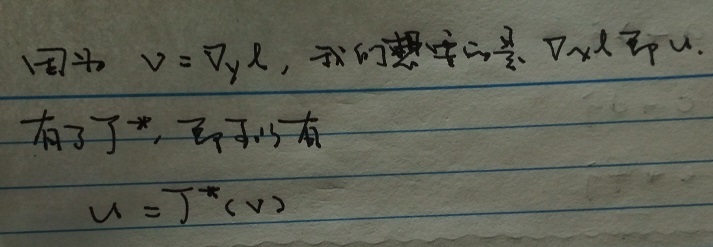 因为 v = ∇yl, 我们想要的是 ∇xl 即 u.
有了 J*, 即可以有
u = J*(v)